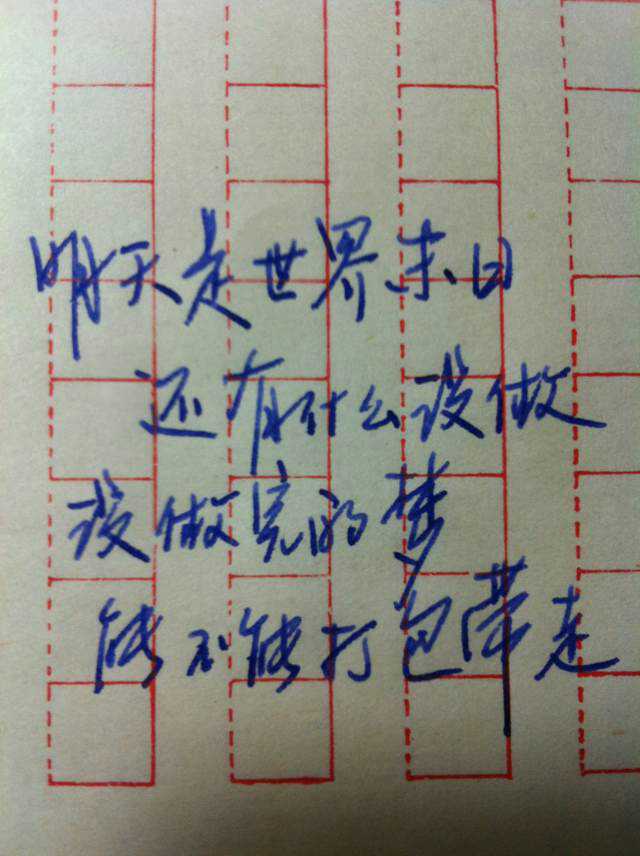 明天是世界末日
还有什么没做
没做完的梦
能不能打包带走